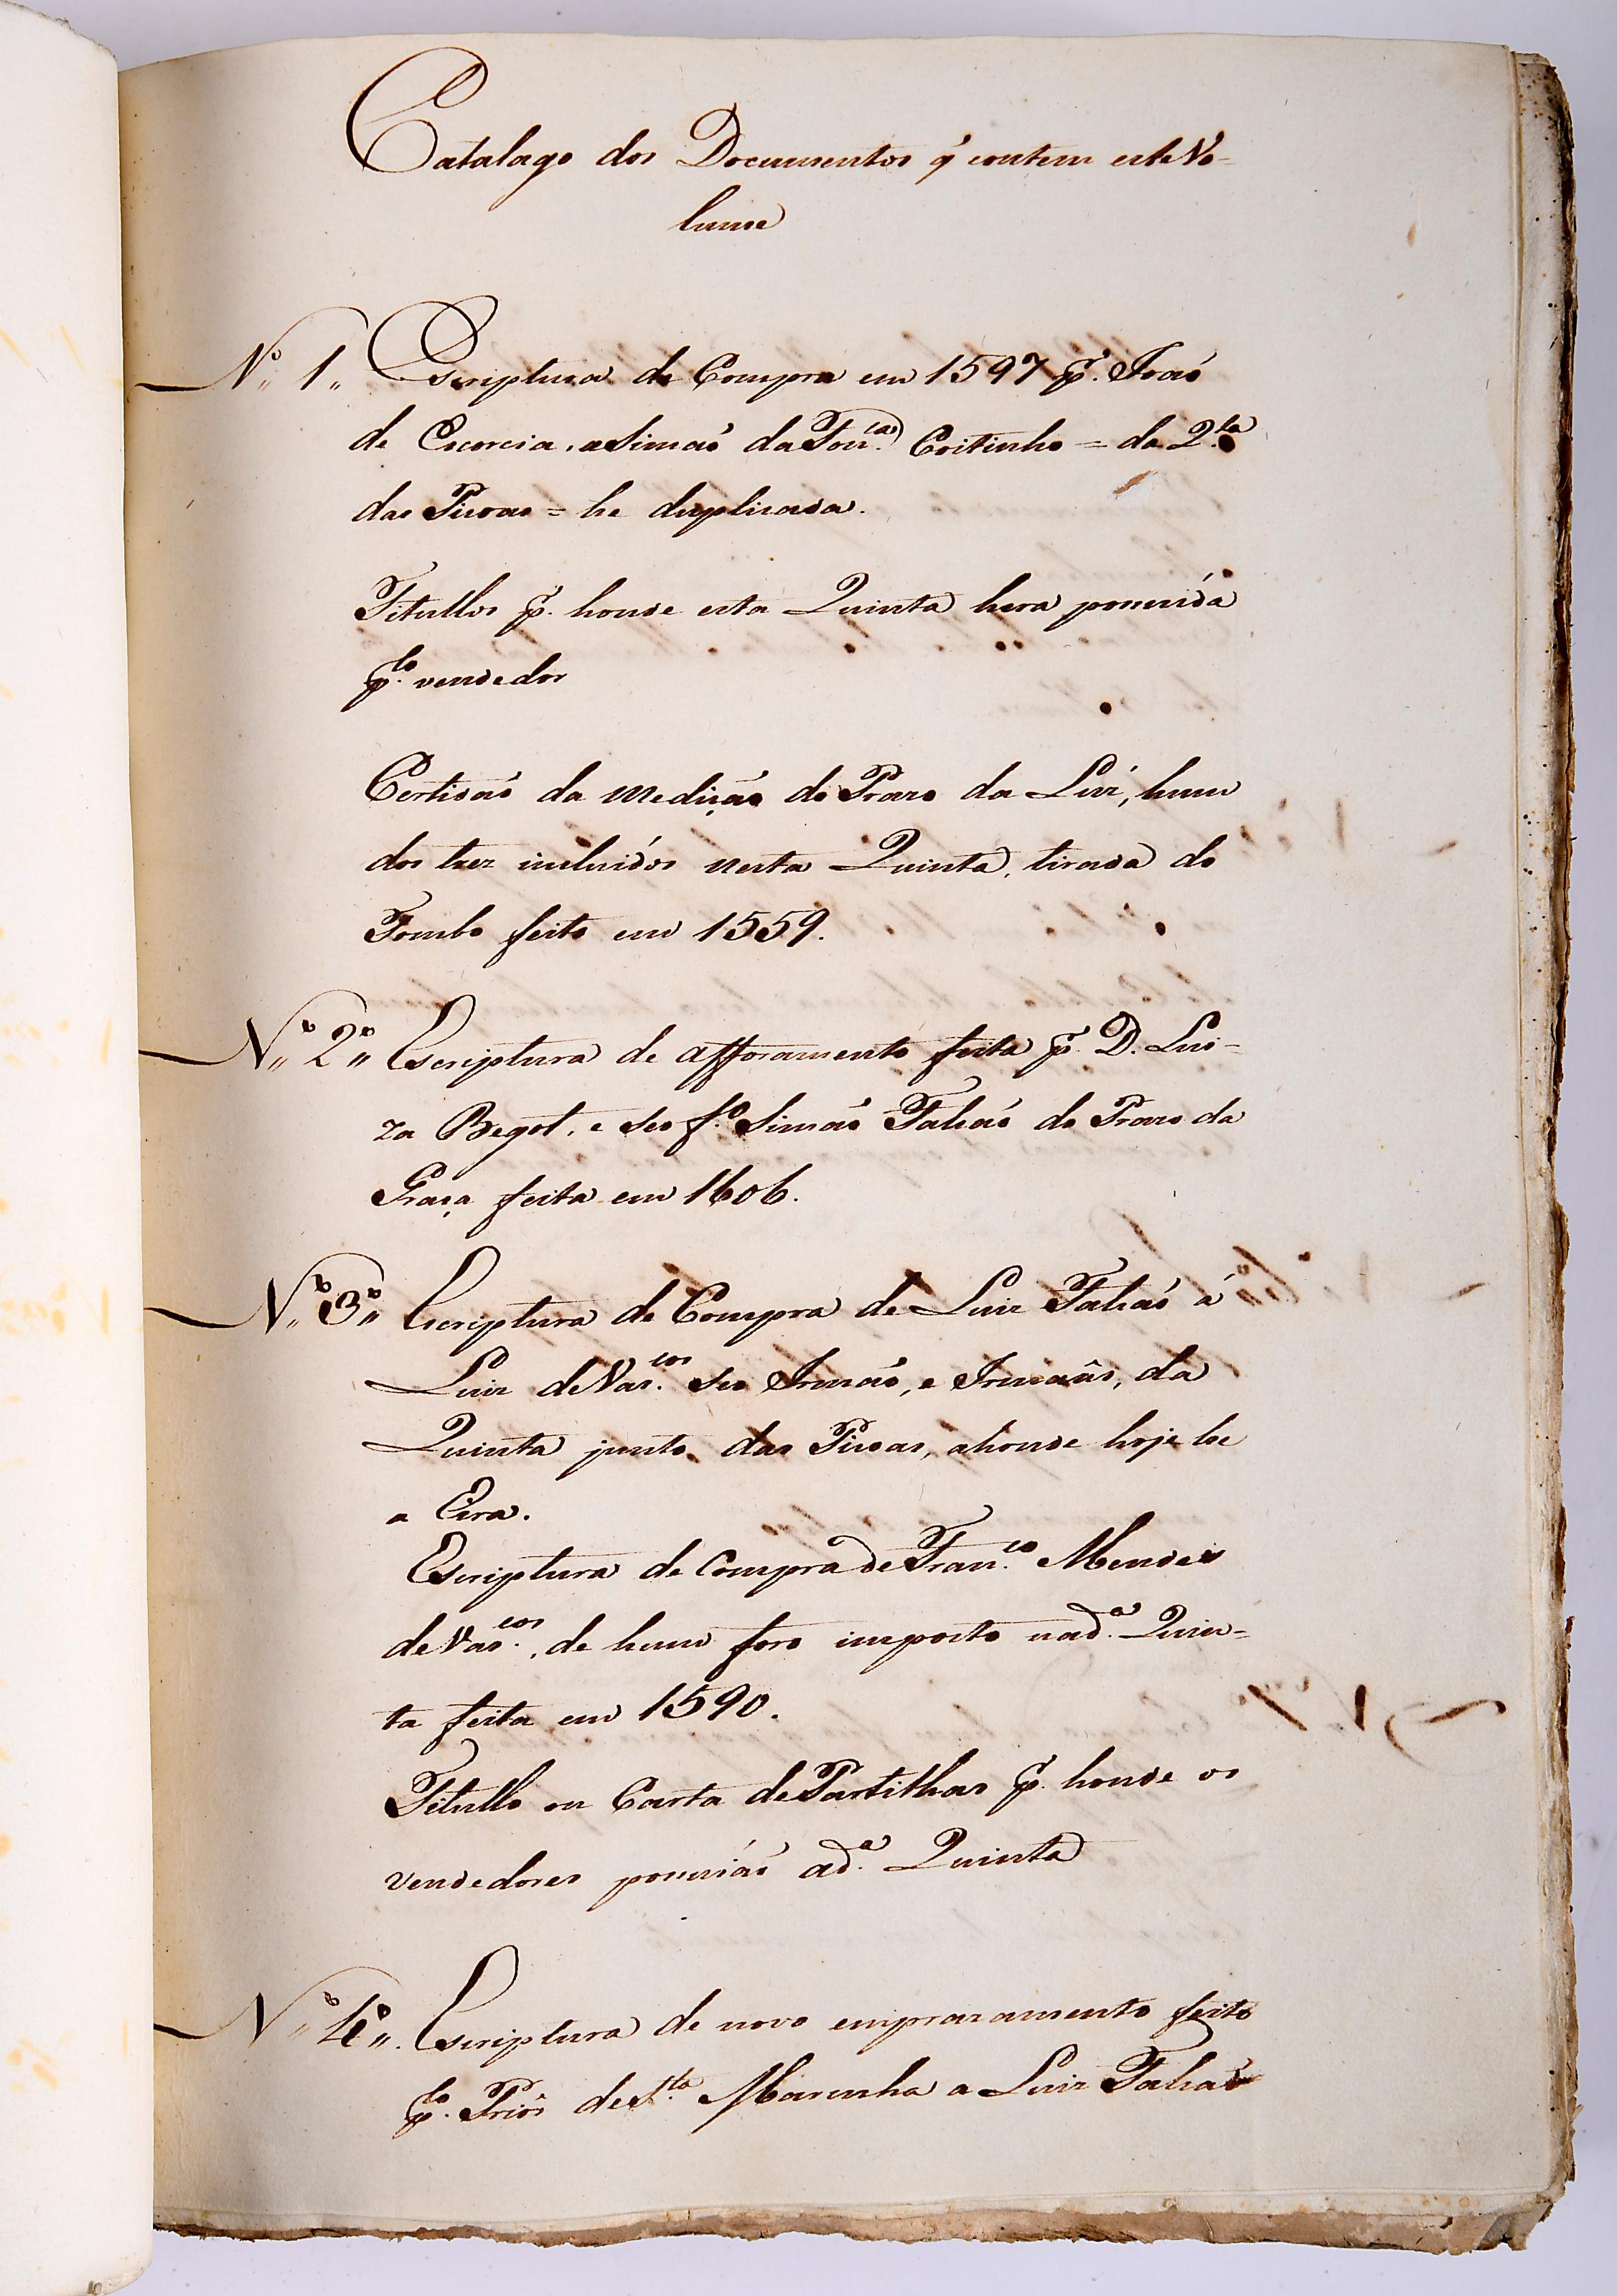 Catalago dos Documentos q̃ contem este Vo-
lume
N.º 1.. Escriptura de Compra em 1597 p.r Joaõ
de Escorcia, a Simaõ da Fon.ca Coitinho = da Q.ta
das Picoas = he duplicada.
Titullos p.r honde esta Quinta hera pocuida
p.lo vendedor
Certidaõ da Mediçaõ do Prazo da Luz, hum
dos trez incluidos nesta Quinta, tirada do
Tombo feito em 1559.
N.º 2.º Escriptura de afforamento feita p.r D. Lui-
za Begot, e seo f.º Simaõ Falcaõ do Prazo da
Graça feita em 1606.
N.º 3.º Escriptura de Compra de Luiz Falcaõ á
Luiz de Vas.cos seo Irmaõ, e Irmaãs, da
Quinta junto das Picoas, ahonde hoje he
a Eira.
Escriptura de Compra de Fran.co Mendes
de Vas.cos, de hum foro imposto na d.a Quin-
ta feita em 1590.
Titullo ou Carta de Partilhas p.r honde os
vendedores pocuiaõ a d.a Quinta
N.º 4.º Escriptura de novo emprazamento feito
p.lo Prior de S.ta Marinha a Luiz Falcaõ